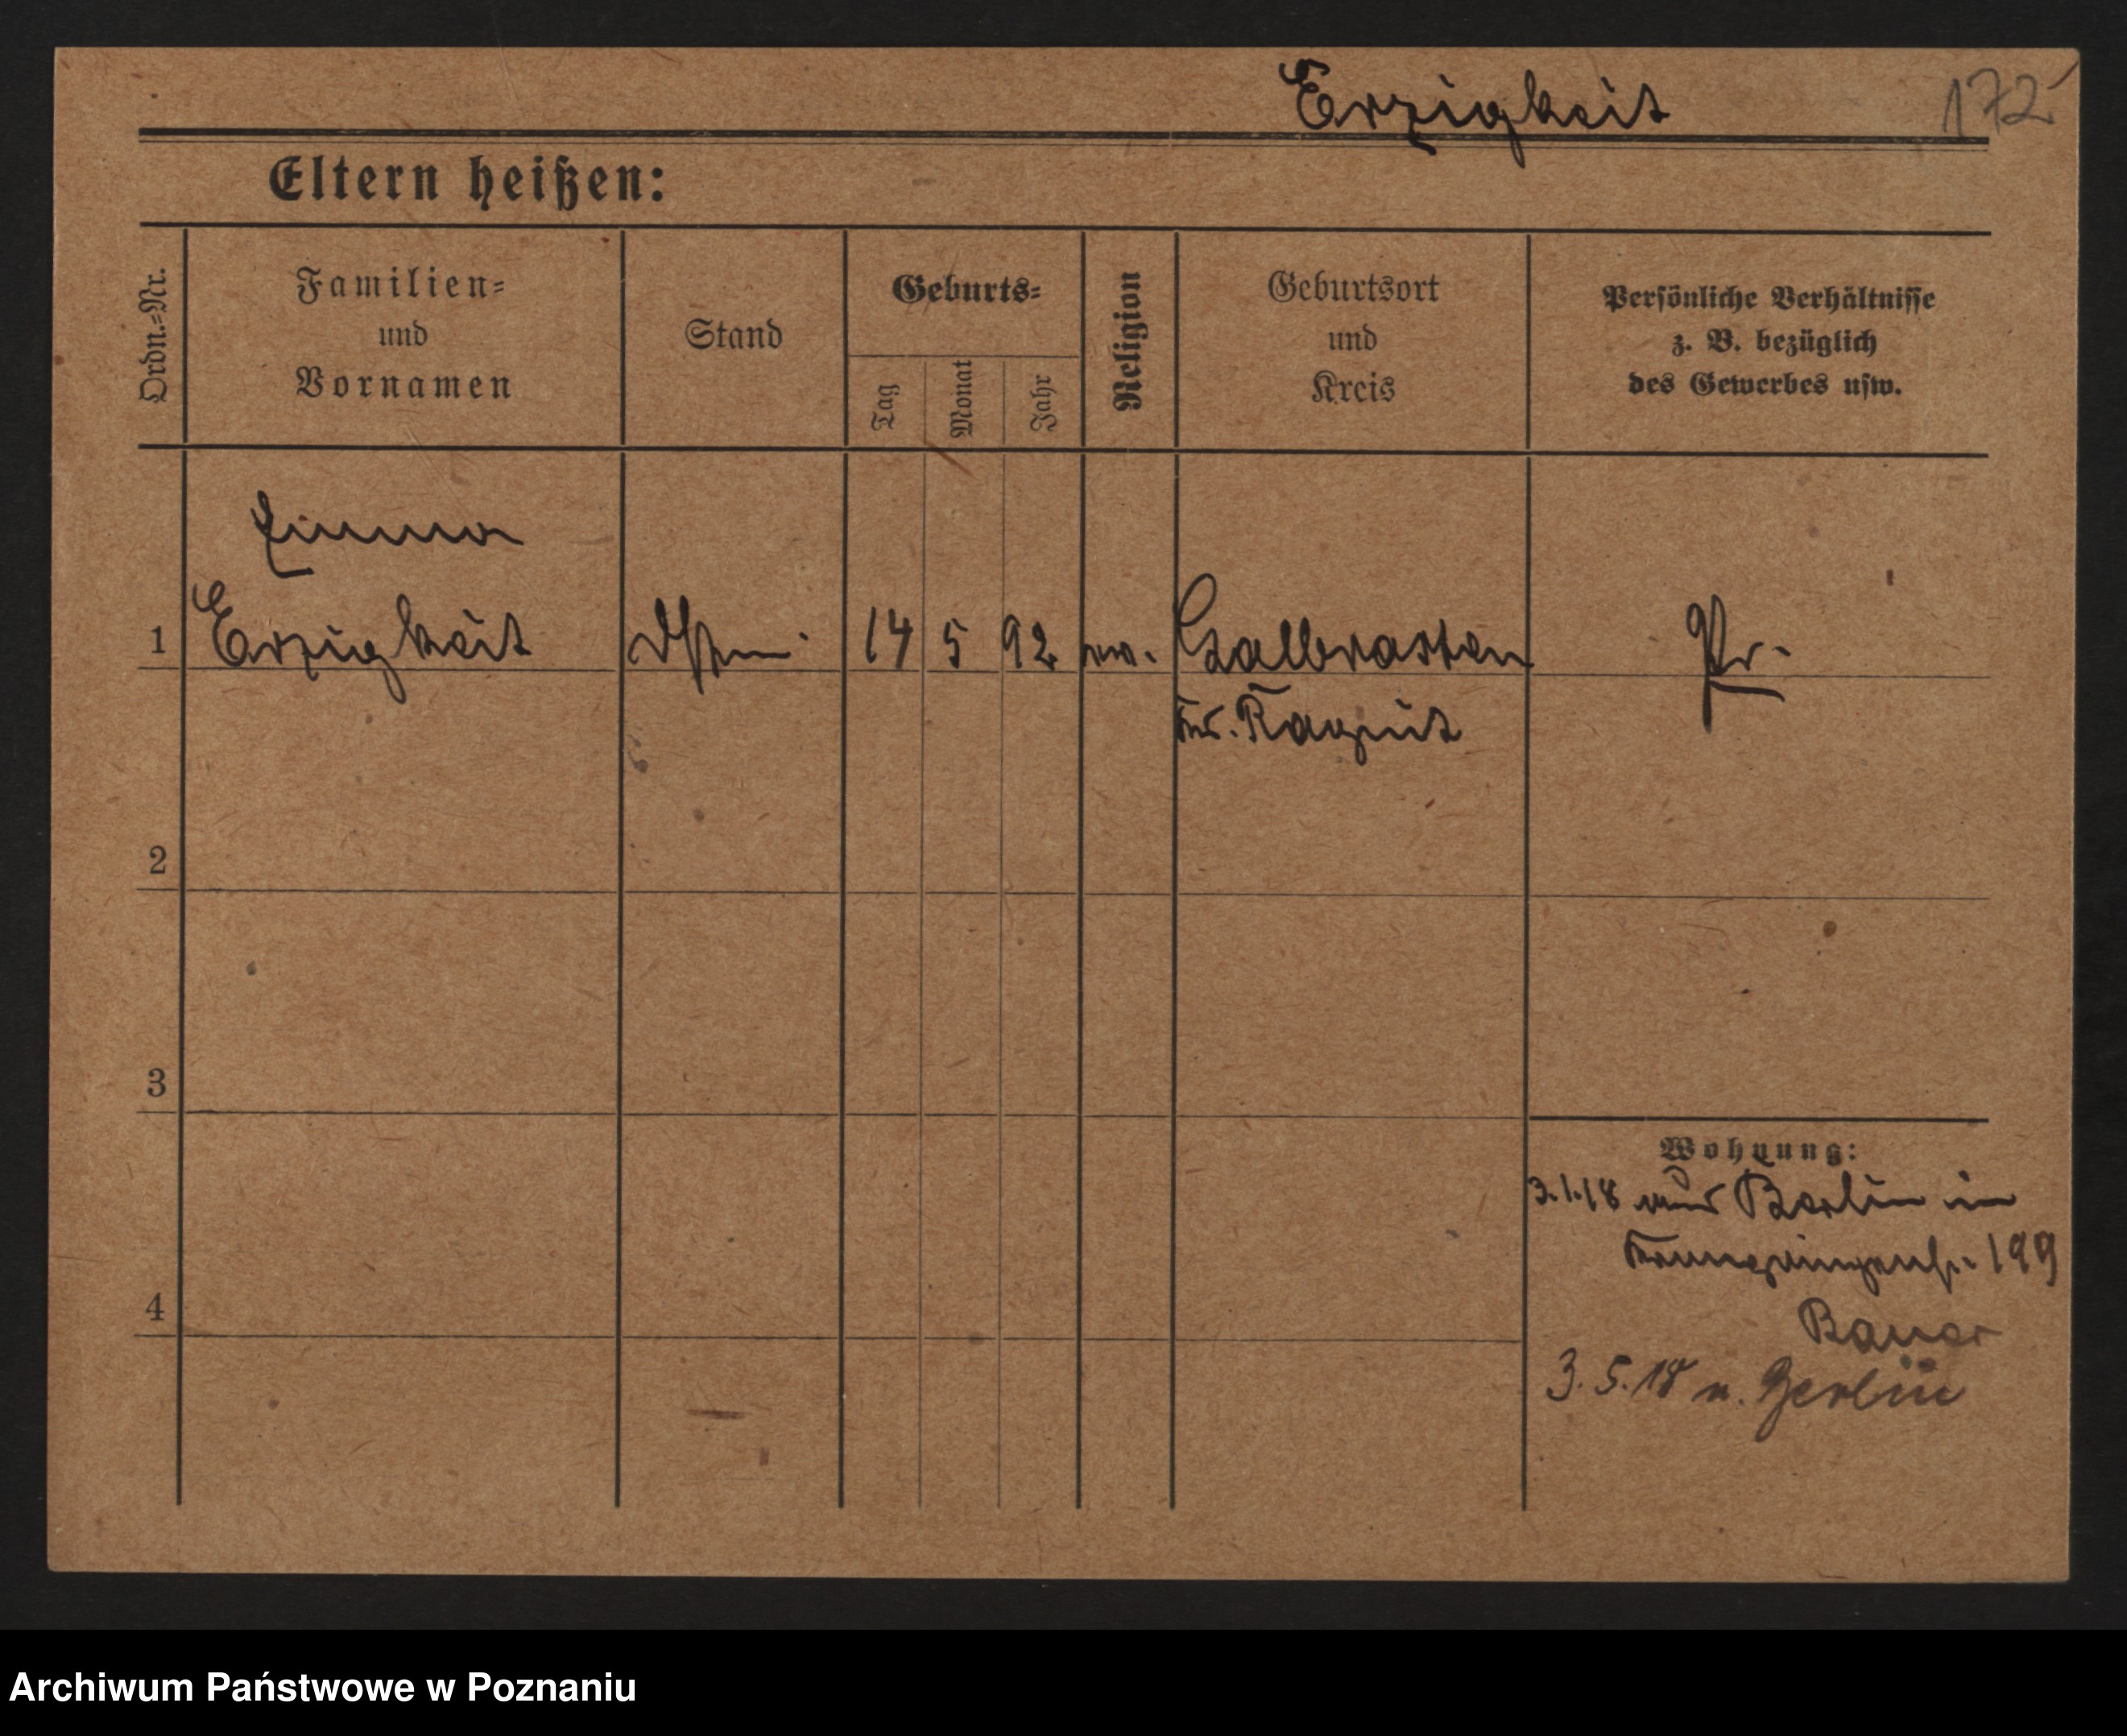 Erzigkeit 172
Eltern heißen:
Ordn.=Nr.
Familien=
und
Vornamen
Stand
Geburts=
Tag
Monat
Jahr
Religion
Geburtsort
und
Kreis
Persönliche Verhältnisse
z. B. bezüglich
des Gewerbes usw.
Emma
1 Erzigkeit 14 5 92 ev. Galbrasten Pr.
Kr. Ragnit
2
3
4
Wohnung:
3.1.18 aus Berlin in
199
Bauer
3.5.18 n. Berlin
Archiwum Państwowe w Poznaniu